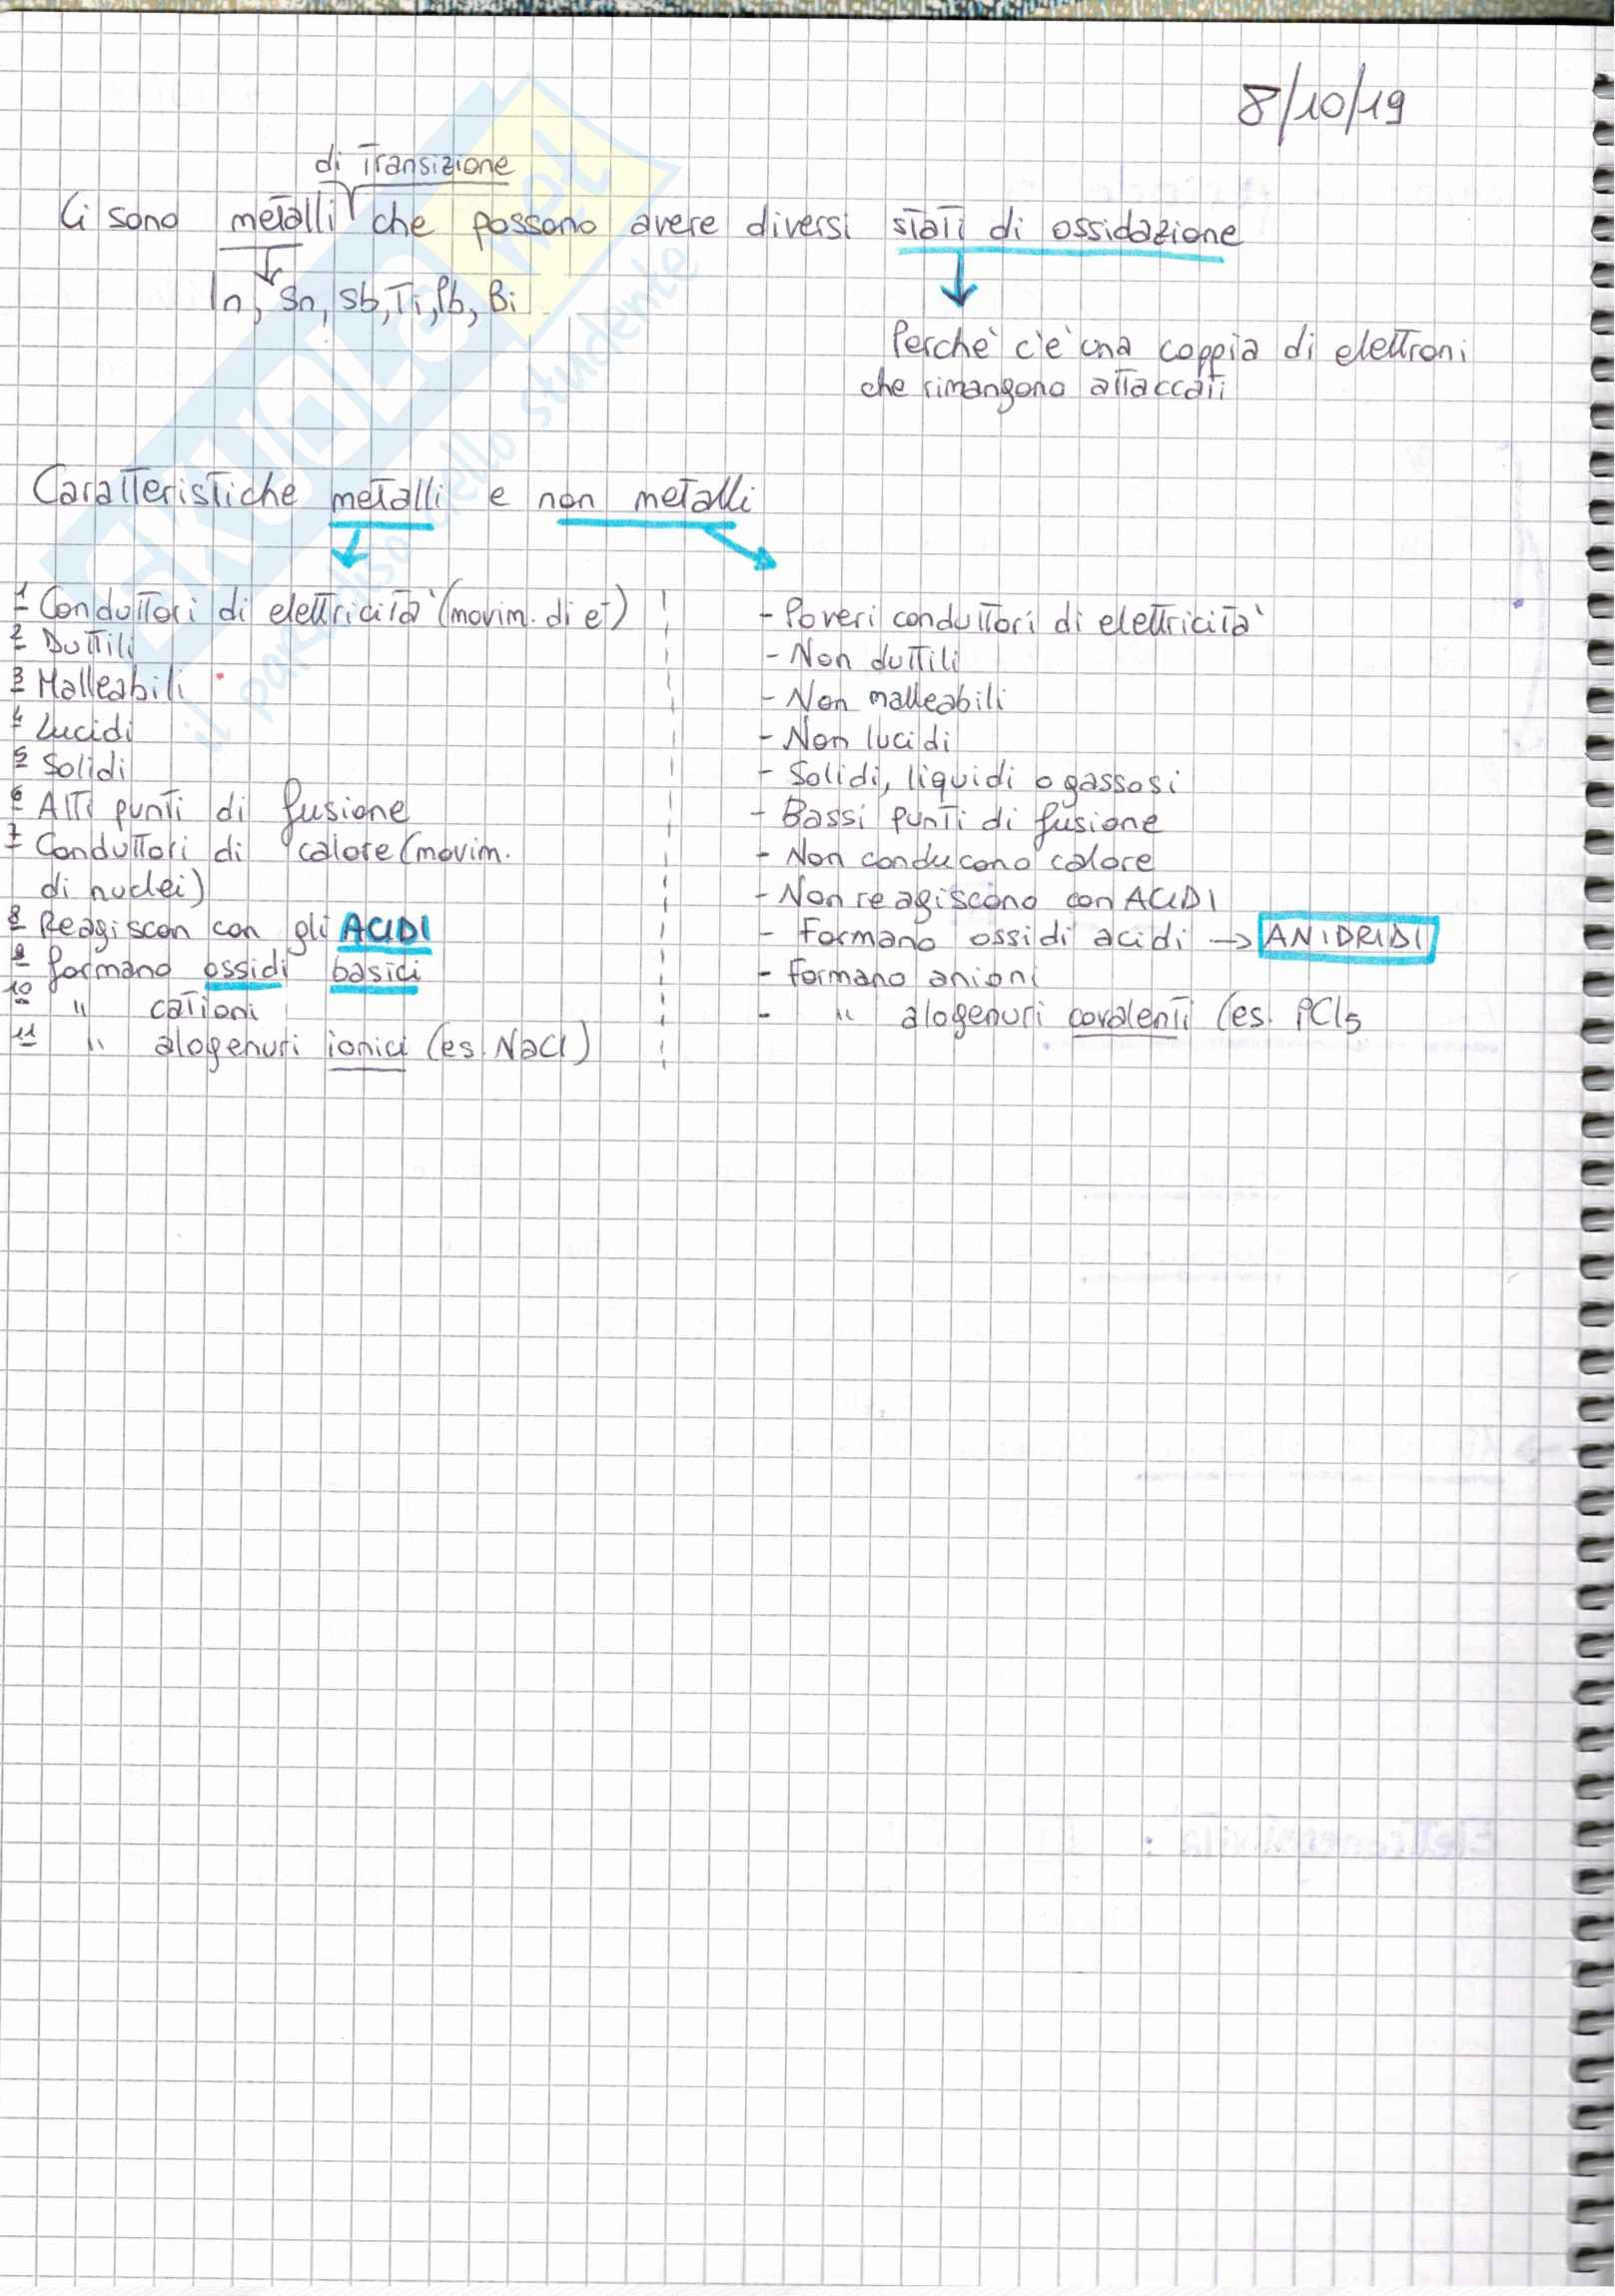 8/10/19
di Transizione
Ci sono metalli che possono avere diversi stati di ossidazione
In, Sn, Sb, Ti, Pb, Bi
Perchè c'è una coppia di elettroni
che rimangono attaccati
Caratteristiche metalli e non metalli
1 Conduttori di elettricità (movim. di e⁻)
2 Duttili
3 Malleabili
4 Lucidi
5 Solidi
6 Alti punti di fusione
7 Conduttori di calore (movim.
di nuclei)
8 Reagiscon con gli ACIDI
9 formano ossidi basici
10 " cationi
11 " alogenuri ionici (es. NaCl)
- Poveri conduttori di elettricità
- Non duttili
- Non malleabili
- Non lucidi
- Solidi, liquidi o gassosi
- Bassi punti di fusione
- Non conducono calore
- Non reagiscono con ACIDI
- Formano ossidi acidi → ANIDRIDI
- formano anioni
- " alogenuri covalenti (es. PCl5
SKUOLA.net
il paradiso dello studente